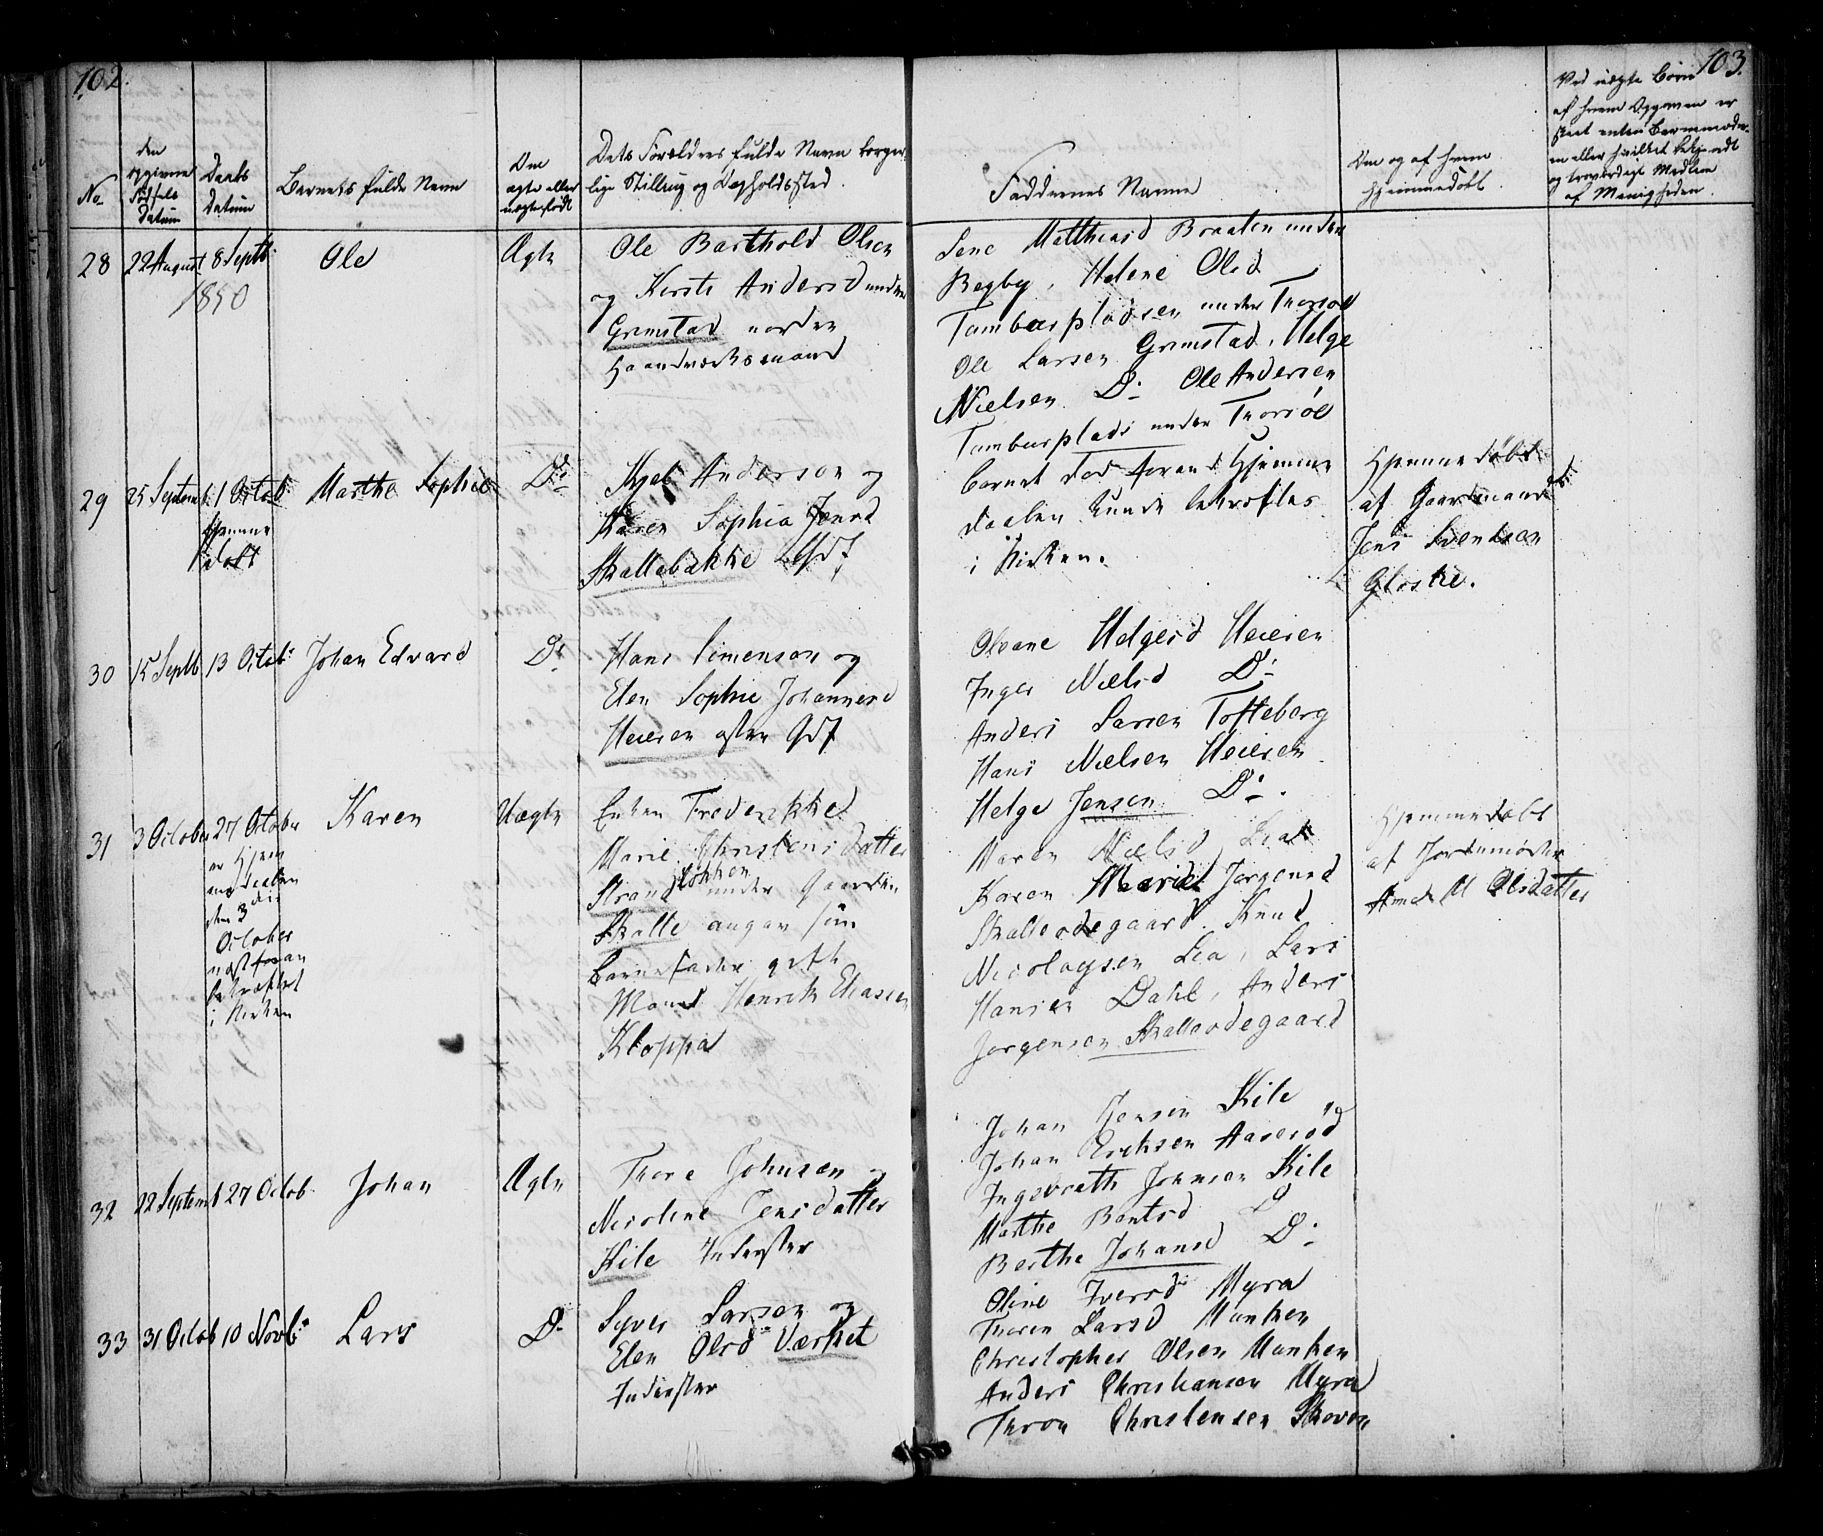 102.
103.
No
den
opgivne
Fødsels
Datum
Daabs
Datum
Barnets fulde Navn
Om
ægte eller
uægtefødt
Dets Forældres fulde Navn borger
lige Stilling og Opholdssted.
Faddernes Navne
Om og af hvem
hjemmedøbt.
Ved uægte Børn
af hvem Opgaven er
skeet enten Barnemoder
en eller hvilket bekjendt
og troværdigt Medlem
af Menigheden.
28 22 August 8 Septb: Ole Ægte
1850
Ole Barthold Olsen
og Kirsti Andersd under
Grimstad norden
Haandværksmand
Lene Matthiasd Braaten under
Begby, Helene Olsd
Tamburpladsen under Thorsøe
Ole Larsen Grimstad, Helge
Nielsen Do Ole Andersen
Tamburplads under Thorsøe
29 25 Septemb: 1 Octob: Marthe Sophie Do
hjemme
døbt
Andersen og
Karen Sophia Jensd
Skallebakke Gdf
Barnet død forend Hjemme
daaben kunde bekræftes
i Kirken.
Hjemmedøbt
af Gaardmand
Jens Svendsen
30 15 Septb 13 Octob: Johan Edvard Do
Hans Simensen og
Elen Sophie Johannesd
Heieren østen Gdf
Olvane Helgesd Heieren
Inger Nielsd Do
Anders Larsen Tofteberg
Hans Nielsen Heieren
Helge Jensen Do
31 3 October 27 October Karen Uægte
er Hjem
medaaben
den 3 die
October
næstforan
bekræftet
i Kirken
Enken Frederikke
Marie Christensdatter
Strandløkken under Gaarden
Skalle angav som
Barnefader gift
Mand Henrik Eliasen
Kloppa
Maren Nielsd Lea
Karen Marie Jørgensd
Skalleødegaard Knud
Nicolaysen Lea, Lars
Hansen Dahl, Anders
Jørgensen Skalleødegaard
Hjemmedøbt
af Jordemoder
M Olsdatter
32 22 Septemb 27 Octob. Johan Ægte
Thore Johnsen og
Nicoline Jensdatter
Kile Inderster
Johan Jensen Kile
Johan Ericksen Aaserød
Ingebreth Johnsen Kile
Marthe Bentsd
Berthe Johansd Do
33 31 Octob 10 Novb: Lars Do
Syver Larsen og
Elen Olsd Værket
Inderster
Oline Iversd Myra
Thoren Larsd Munken
Christopher Olsen Munken
Anders Christiansen Myra
Thron Christensen Skoven